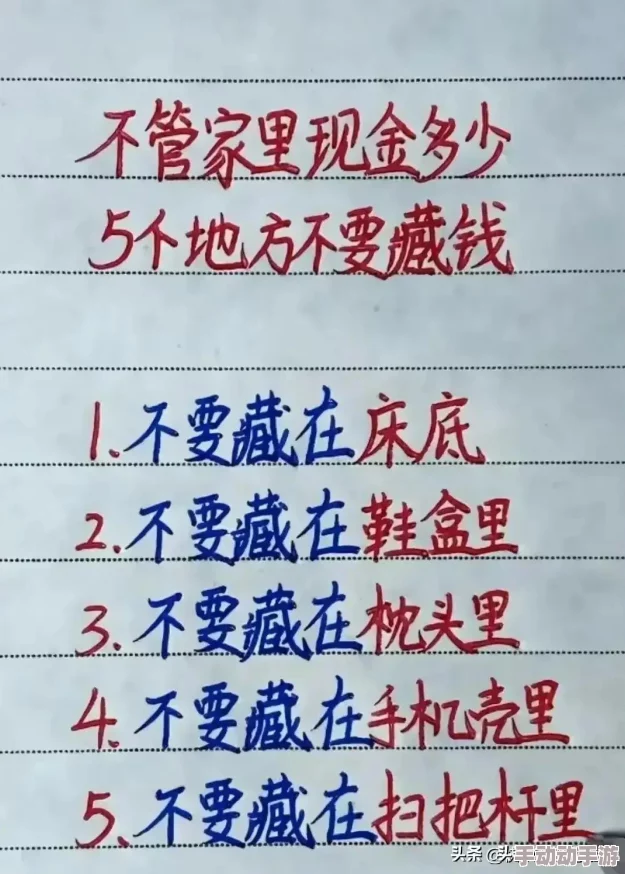 不管家里现金多少
5个地方不要藏钱
1.不要藏在床底
2.不要藏在鞋盒里
3.不要藏在枕头里
4.不要藏在手机壳里
5.不要藏在扫把杆里
头条
手动动手游